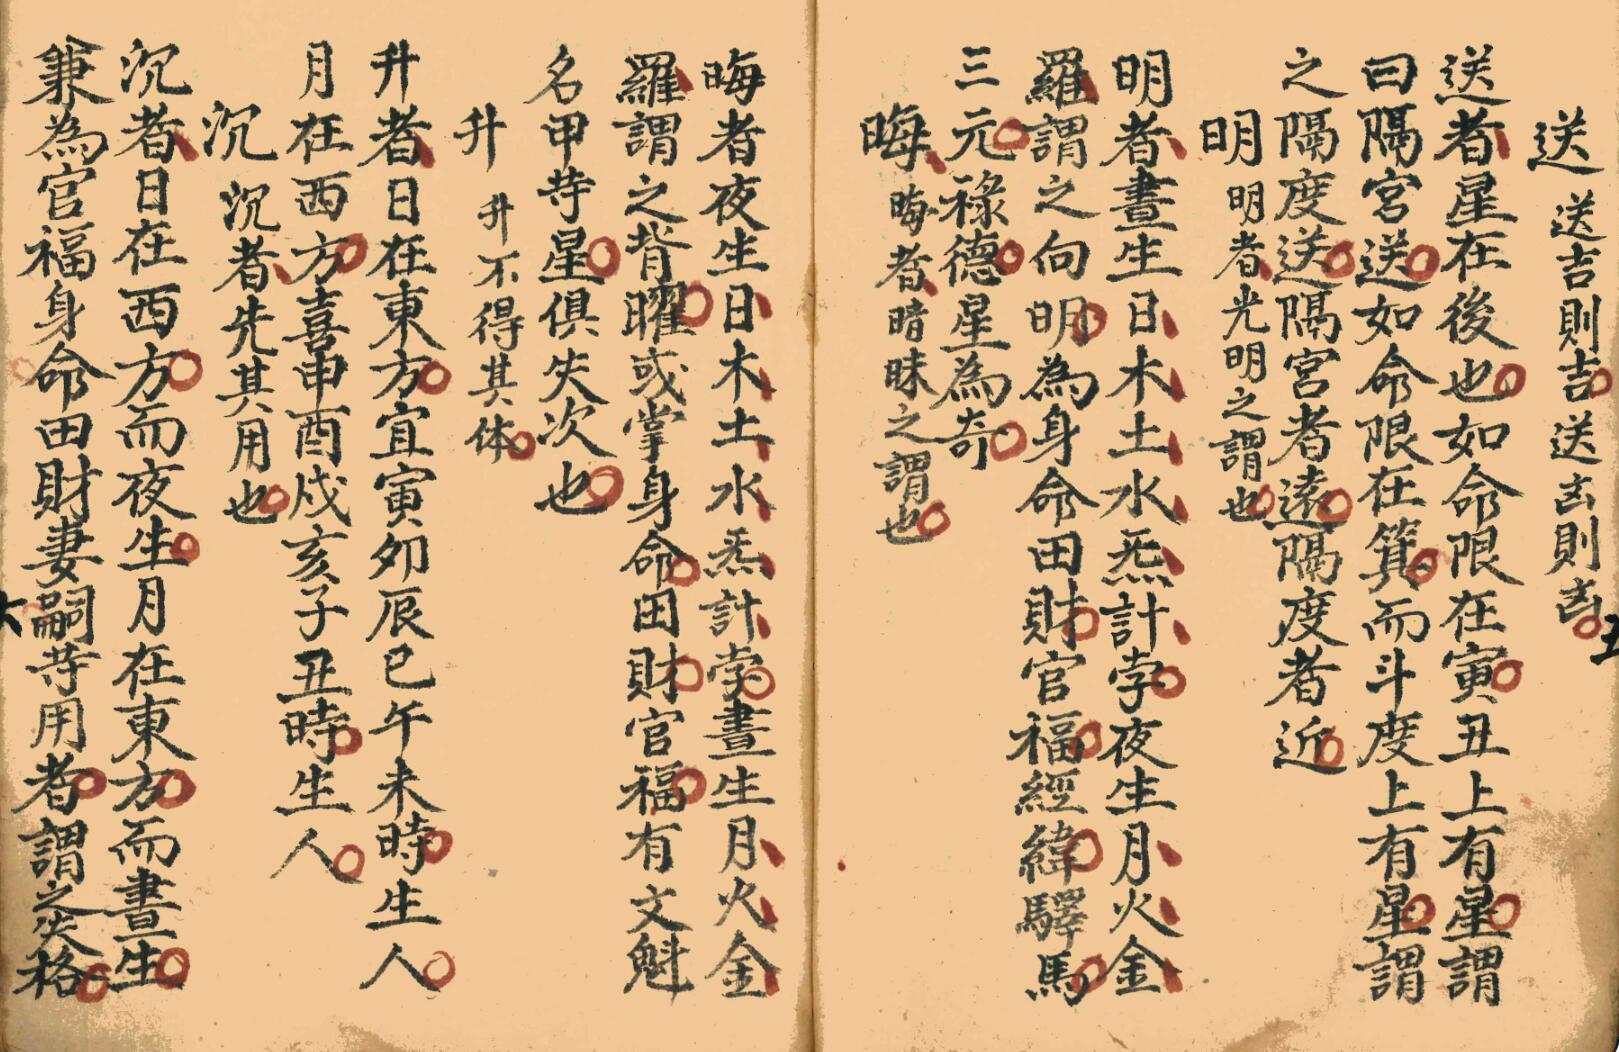 送 送吉則吉送凶則凶
送者星在後也如命限在寅丑上有星謂
曰隔宮送如命限在箕而斗度上有星謂
之隔度送隔宮者遠隔度者近
明 明者光明之謂也
明者晝生日木土水炁計孛夜生月火金
羅謂之向明為身命田財官福經緯驛馬
三元祿德星為奇
晦 晦者暗昧之謂也
晦者夜生日木土水炁計孛晝生月火金
羅謂之背曜或掌身命田財官福有文魁
名甲等星俱失次也
升 升不得其体
升者日在東方宜寅夘辰巳午未時生人
月在西方喜申酉戍亥子丑時生人
沉 沉者先其用也
沉者日在西方而夜生月在東方而晝生
兼為官福身命田財妻嗣等用者謂之失格
五
六